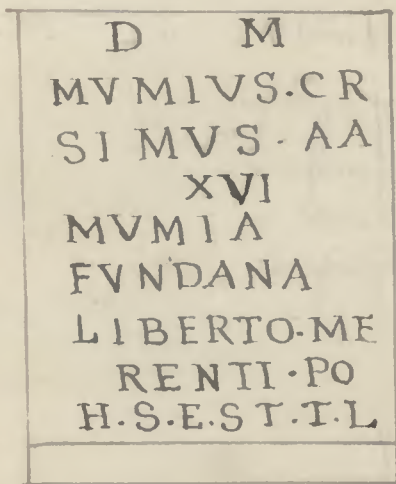 D M
MVMIVS·CR
SIMVS·AA
XVI
MVMIA
FVNDANA
LIBERTO·ME
RENTI·PO
H·S·E·ST·T·L